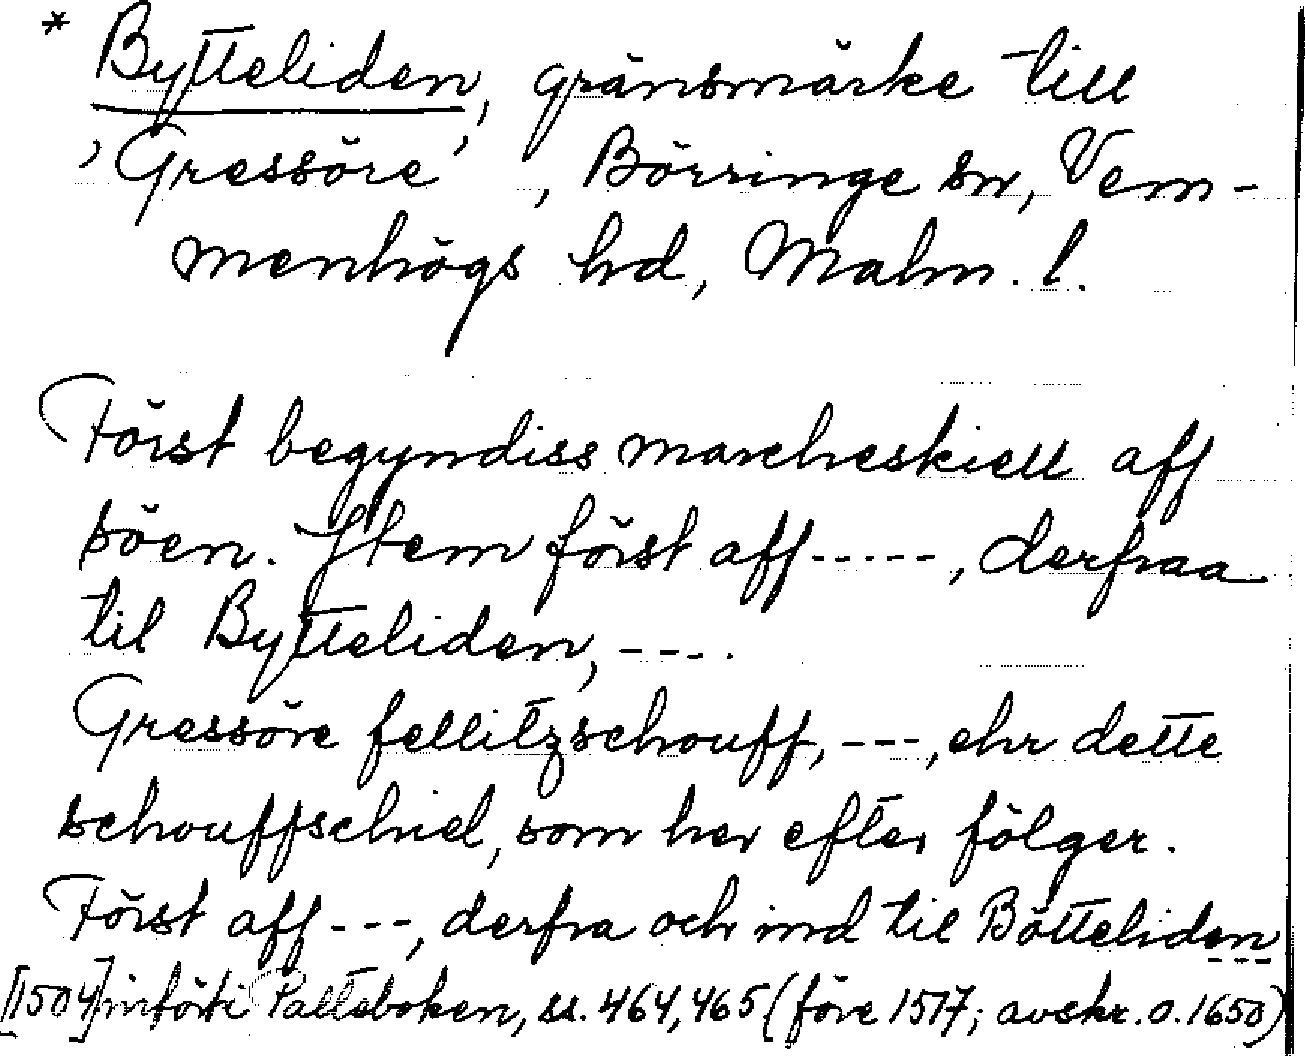 * Bytteliden, gränsmärke till
'Gressöre', Börringe sn, Vem-
menhögs hd, Malm. l.
Först begyndiss marcheskiell aff
söen. Item först aff -----, derfraa
til Bytteliden, ----.
Gressöre fellitzschouff, ---, ehr dette
schouffschiel, som her efter fölger.
Först aff ---, derfra och ind til Bötteliden
[1504] införti Palteboken, ss. 464, 465 (före 1517; avskr. o. 1650)